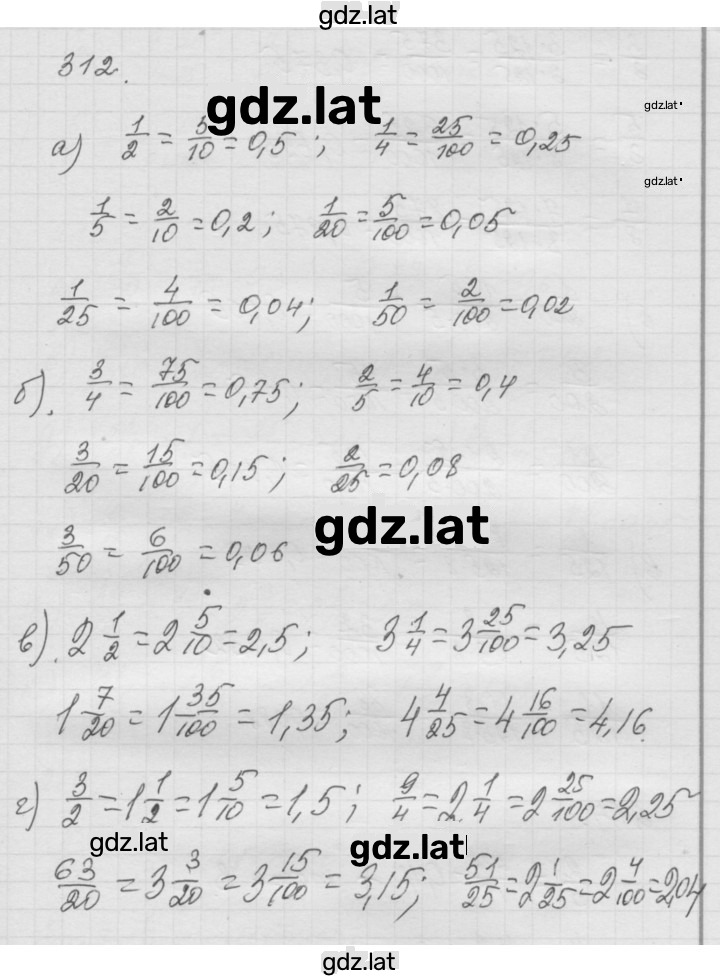 gdz.lat
312.
gdz.lat
gdz.lat
а) 1/2 = 5/10 = 0,5 ; 1/4 = 25/100 = 0,25
gdz.lat
1/5 = 2/10 = 0,2 ; 1/20 = 5/100 = 0,05
1/25 = 4/100 = 0,04 ; 1/50 = 2/100 = 0,02
б). 3/4 = 75/100 = 0,75 ; 2/5 = 4/10 = 0,4
3/20 = 15/100 = 0,15 ; 2/25 = 0,08
gdz.lat
3/50 = 6/100 = 0,06
в). 2 1/2 = 2 5/10 = 2,5 ; 3 1/4 = 3 25/100 = 3,25
1 7/20 = 1 35/100 = 1,35 ; 4 4/25 = 4 16/100 = 4,16.
г) 3/2 = 1 1/2 = 1 5/10 = 1,5 ; 9/4 = 2 1/4 = 2 25/100 = 2,25
gdz.lat
gdz.lat
63/20 = 3 3/20 = 3 15/100 = 3,15 ; 51/25 = 2 1/25 = 2 4/100 = 2,04
gdz.lat